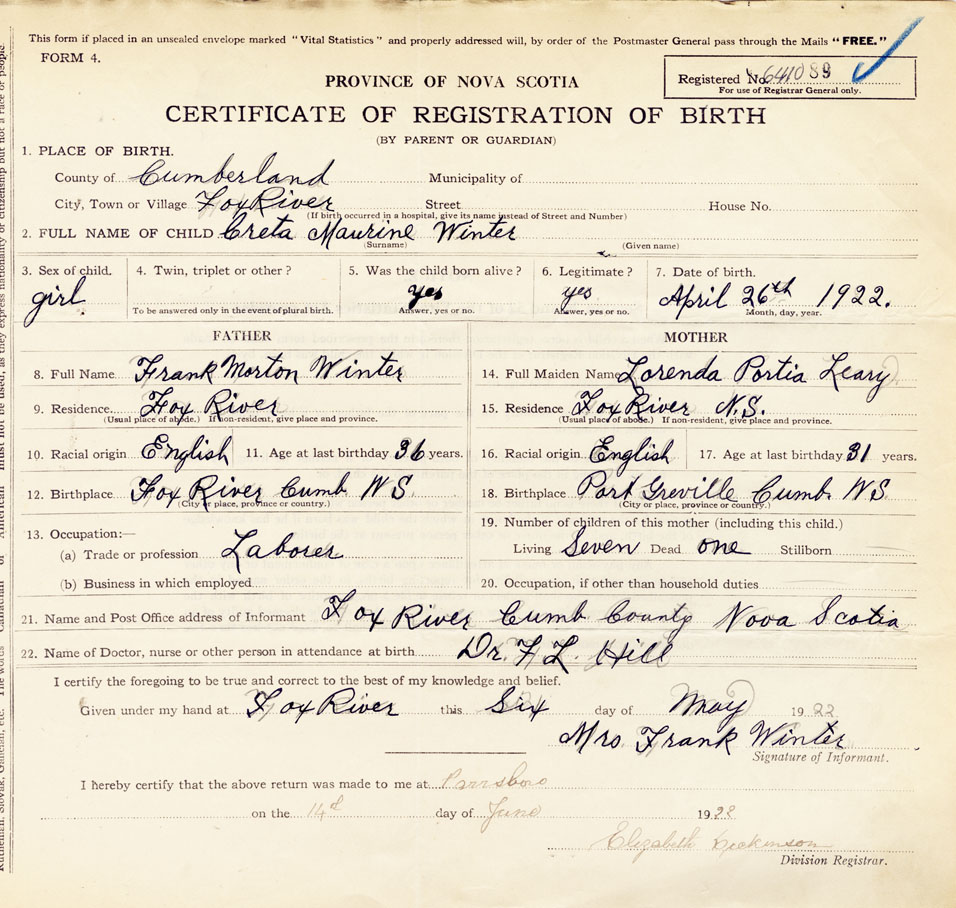 This form if placed in an unsealed envelope marked "Vital Statistics" and properly addressed will, by order of the Postmaster General pass through the Mails "FREE."
FORM 4.
Registered No. 641089
For use of Registrar General only.
PROVINCE OF NOVA SCOTIA
CERTIFICATE OF REGISTRATION OF BIRTH
(BY PARENT OR GUARDIAN)
1. PLACE OF BIRTH.
County of Cumberland Municipality of
City, Town or Village Fox River Street House No.
(If birth occurred in a hospital, give its name instead of Street and Number)
2. FULL NAME OF CHILD Creta Maurine Winter
(Surname) (Given name)
3. Sex of child. 4. Twin, triplet or other? 5. Was the child born alive? 6. Legitimate? 7. Date of birth.
girl yes yes April 26th 1922.
To be answered only in the event of plural birth. Answer, yes or no. Answer, yes or no. Month, day, year.
FATHER MOTHER
8. Full Name Frank Morton Winter 14. Full Maiden Name Lorenda Portia Leary
9. Residence. Fox River 15. Residence Fox River N.S.
(Usual place of abode.) If non-resident, give place and province. (Usual place of abode.) If non-resident, give place and province.
10. Racial origin English 11. Age at last birthday 36 years. 16. Racial origin English 17. Age at last birthday 31 years.
12. Birthplace Fox River Cumb N S. 18. Birthplace Port Greville Cumb. N S.
(City or place, province or country.) (City or place, province or country.)
19. Number of children of this mother (including this child.)
13. Occupation:—
(a) Trade or profession Laborer Living Seven Dead one Stillborn
(b) Business in which employed 20. Occupation, if other than household duties
21. Name and Post Office address of Informant Fox River Cumb County Nova Scotia
22. Name of Doctor, nurse or other person in attendance at birth Dr. F L. Hill
I certify the foregoing to be true and correct to the best of my knowledge and belief.
Given under my hand at Fox River this Six day of May 1922
Mrs Frank Winter
Signature of Informant.
I hereby certify that the above return was made to me at Parrsboro
on the 14th day of June 1922
Elizabeth
Division Registrar.